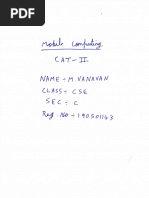 Mobile Computing
CAT-II
NAME:-M.VANAVAN
CLASS:- CSE
SEC:- C
Reg. No:-190501163